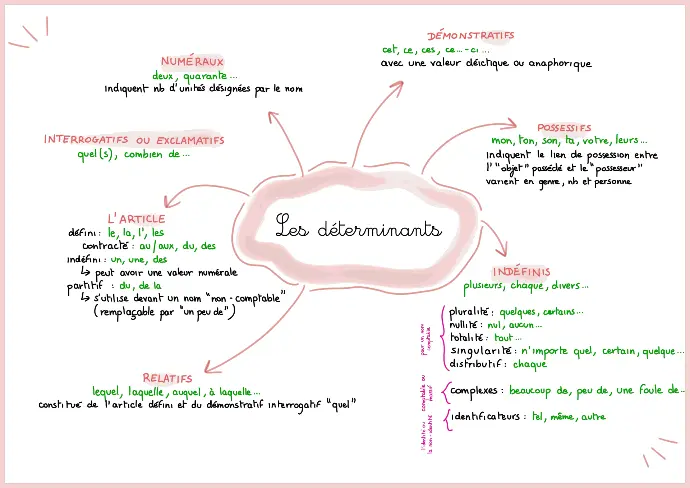 Les déterminants
NUMÉRAUX
deux, quarante...
indiquent nb d'unités désignées par le nom
DÉMONSTRATIFS
cet, ce, ces, ce...-ci...
avec une valeur déictique ou anaphorique
INTERROGATIFS OU EXCLAMATIFS
quel(s), combien de...
POSSESSIFS
mon, ton, son, ta, votre, leurs...
indiquent le lien de possession entre
l'"objet" possédé et le "possesseur"
varient en genre, nb et personne
L'ARTICLE
défini: le, la, l', les
contracté: au/aux, du, des
indéfini: un, une, des
↳ peut avoir une valeur numérale
partitif : du, de la
↳ s'utilise devant un nom "non-comptable"
(remplaçable par "un peu de")
INDÉFINIS
plusieurs, chaque, divers...
pour un nom
comptable
pluralité: quelques, certains...
nullité: nul, aucun...
totalité: tout...
singularité: n'importe quel, certain, quelque...
distributif: chaque
comptable ou
massif
complexes: beaucoup de, peu de, une foule de...
l'identité ou
la non-identité
identificateurs: tel, même, autre
RELATIFS
lequel, laquelle, auquel, à laquelle...
constitué de l'article défini et du démonstratif interrogatif "quel"